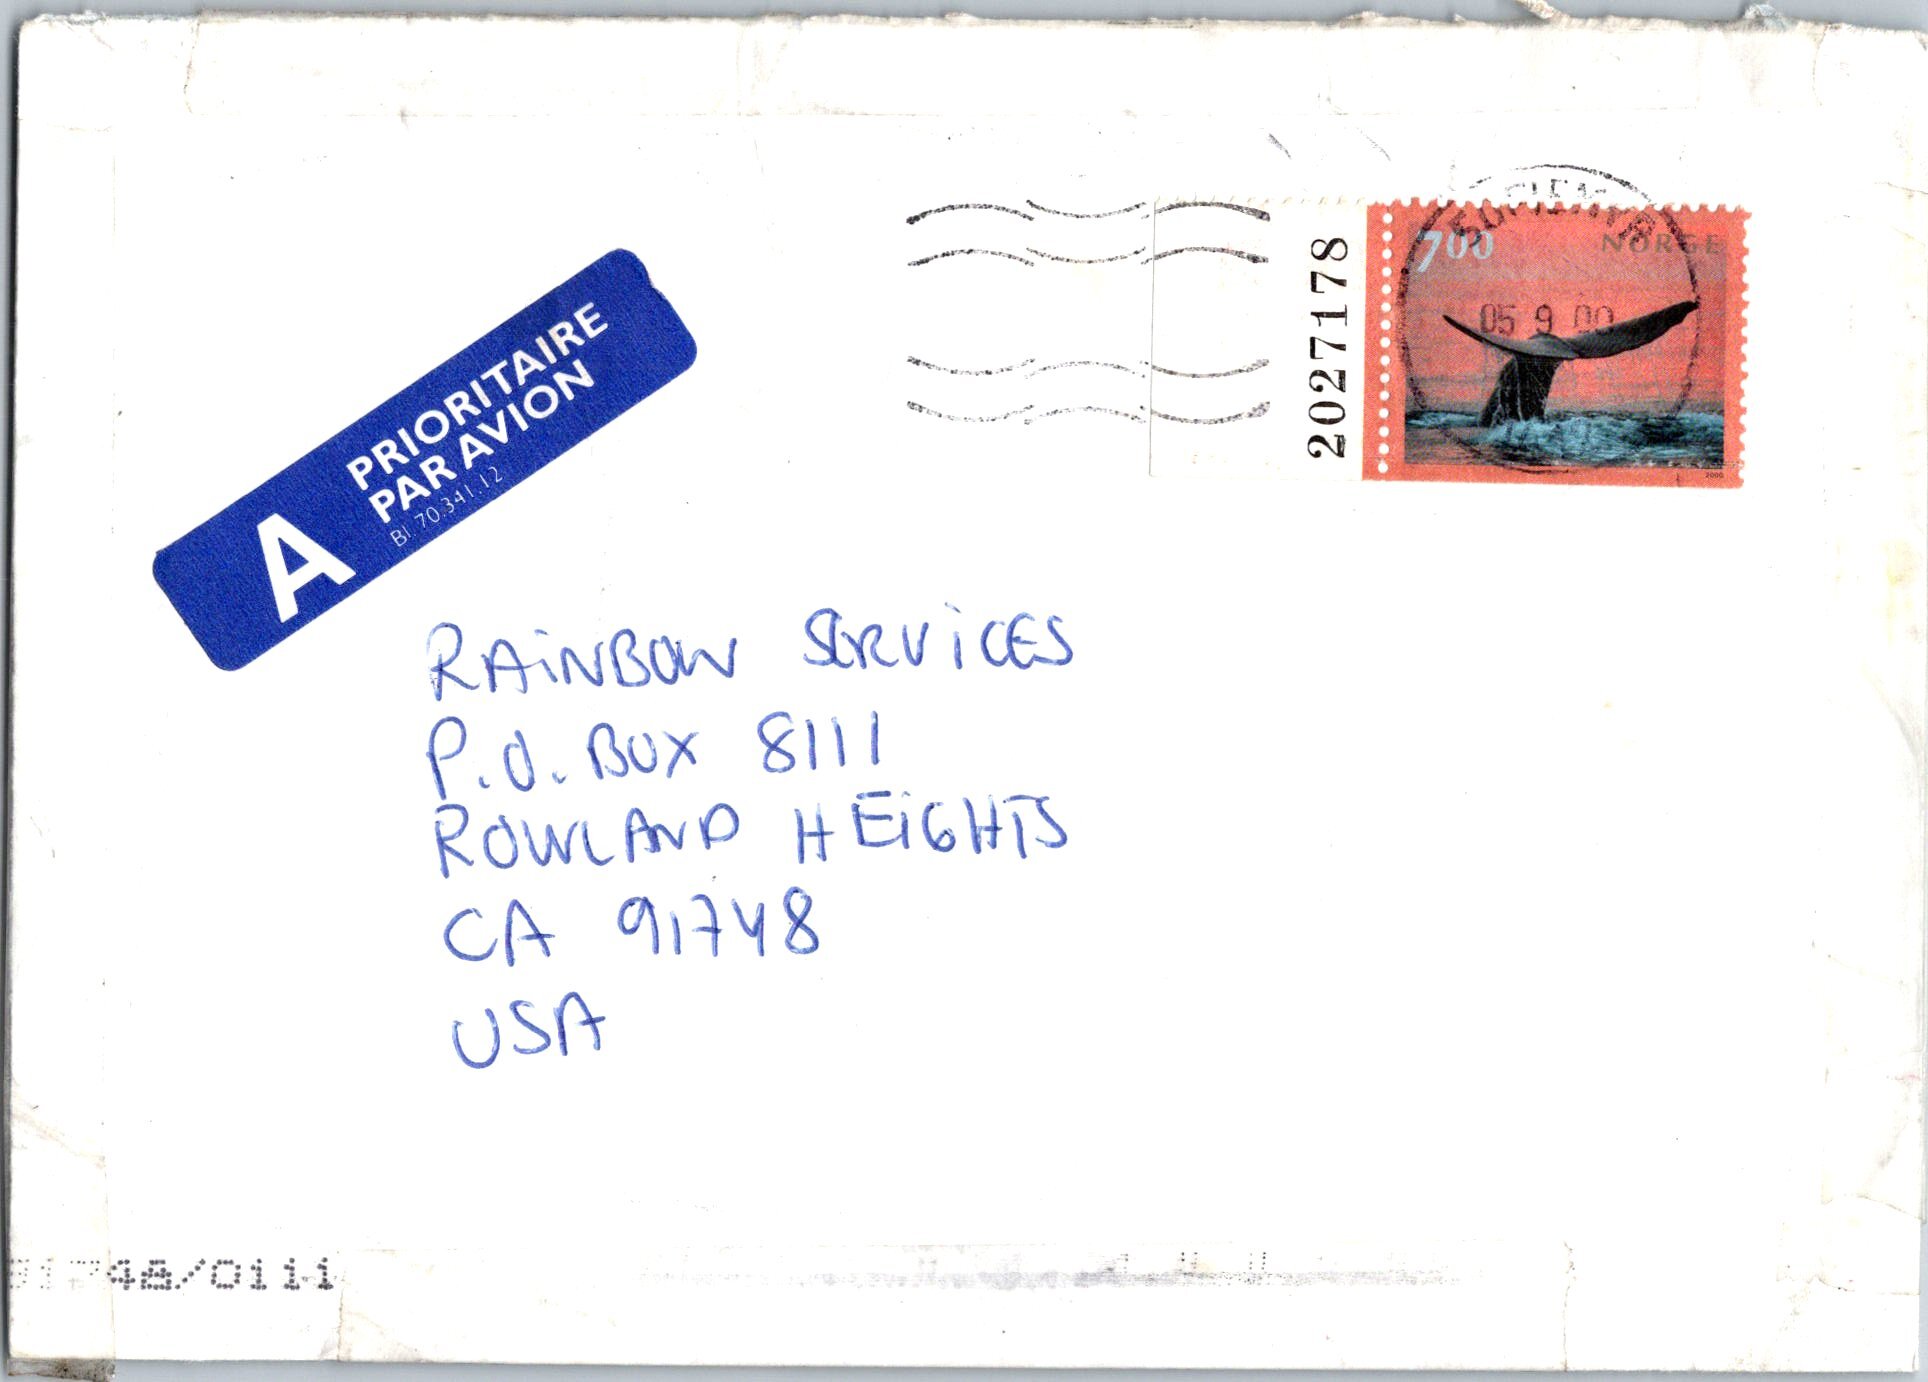 A
PRIORITAIRE
PAR AVION
Bl. 70.341.12
2027178
700 NORGE
05 9 00
2000
RAiNBOW SERViCES
P.O. BOX 8111
ROWLAND HEiGHTS
CA 91748
USA
91748/0111